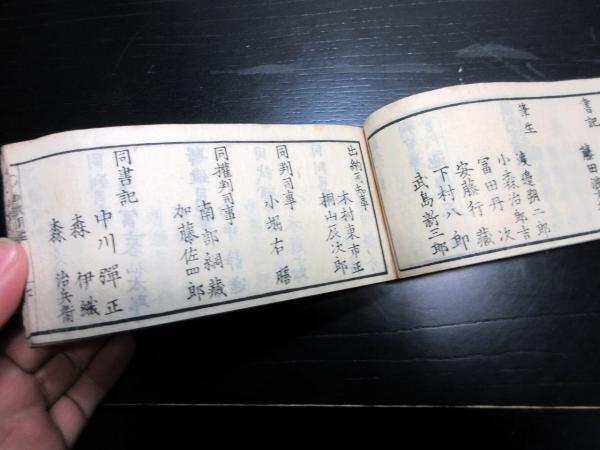 書記
藤田
筆生
渡邊鋼二郎
小森治郎吉
冨田丹次
安藤行藏
下村八郎
武島新三郎
出納司知事
本村東市正
桐山辰次郎
同判司事
小堀右膳
同權判司事
南部綱藏
加藤佐四郎
同書記
中川彈正
森伊織
森治兵衞